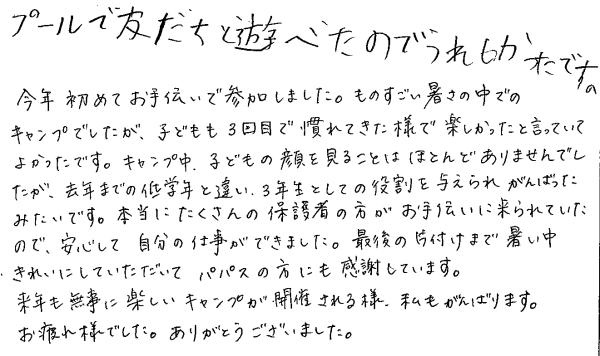 プールで友だちと遊べたのでうれしかったです。
今年初めてお手伝いで参加しました。ものすごい暑さの中での
キャンプでしたが、子どもも3回目で慣れてきた様で楽しかったと言っていて
よかったです。キャンプ中、子どもの顔を見ることはほとんどありませんでし
たが、去年までの低学年と違い、3年生としての役割を与えられがんばった
みたいです。本当にたくさんの保護者の方がお手伝いに来られていた
ので、安心して自分の仕事ができました。最後の片付けまで暑い中
きれいにしていただいてパパスの方にも感謝しています。
来年も無事に楽しいキャンプが開催される様、私もがんばります。
お疲れ様でした。ありがとうございました。